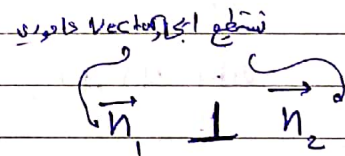 نستطيع ايجاد Vector عامودي
n₁ ⊥ n₂